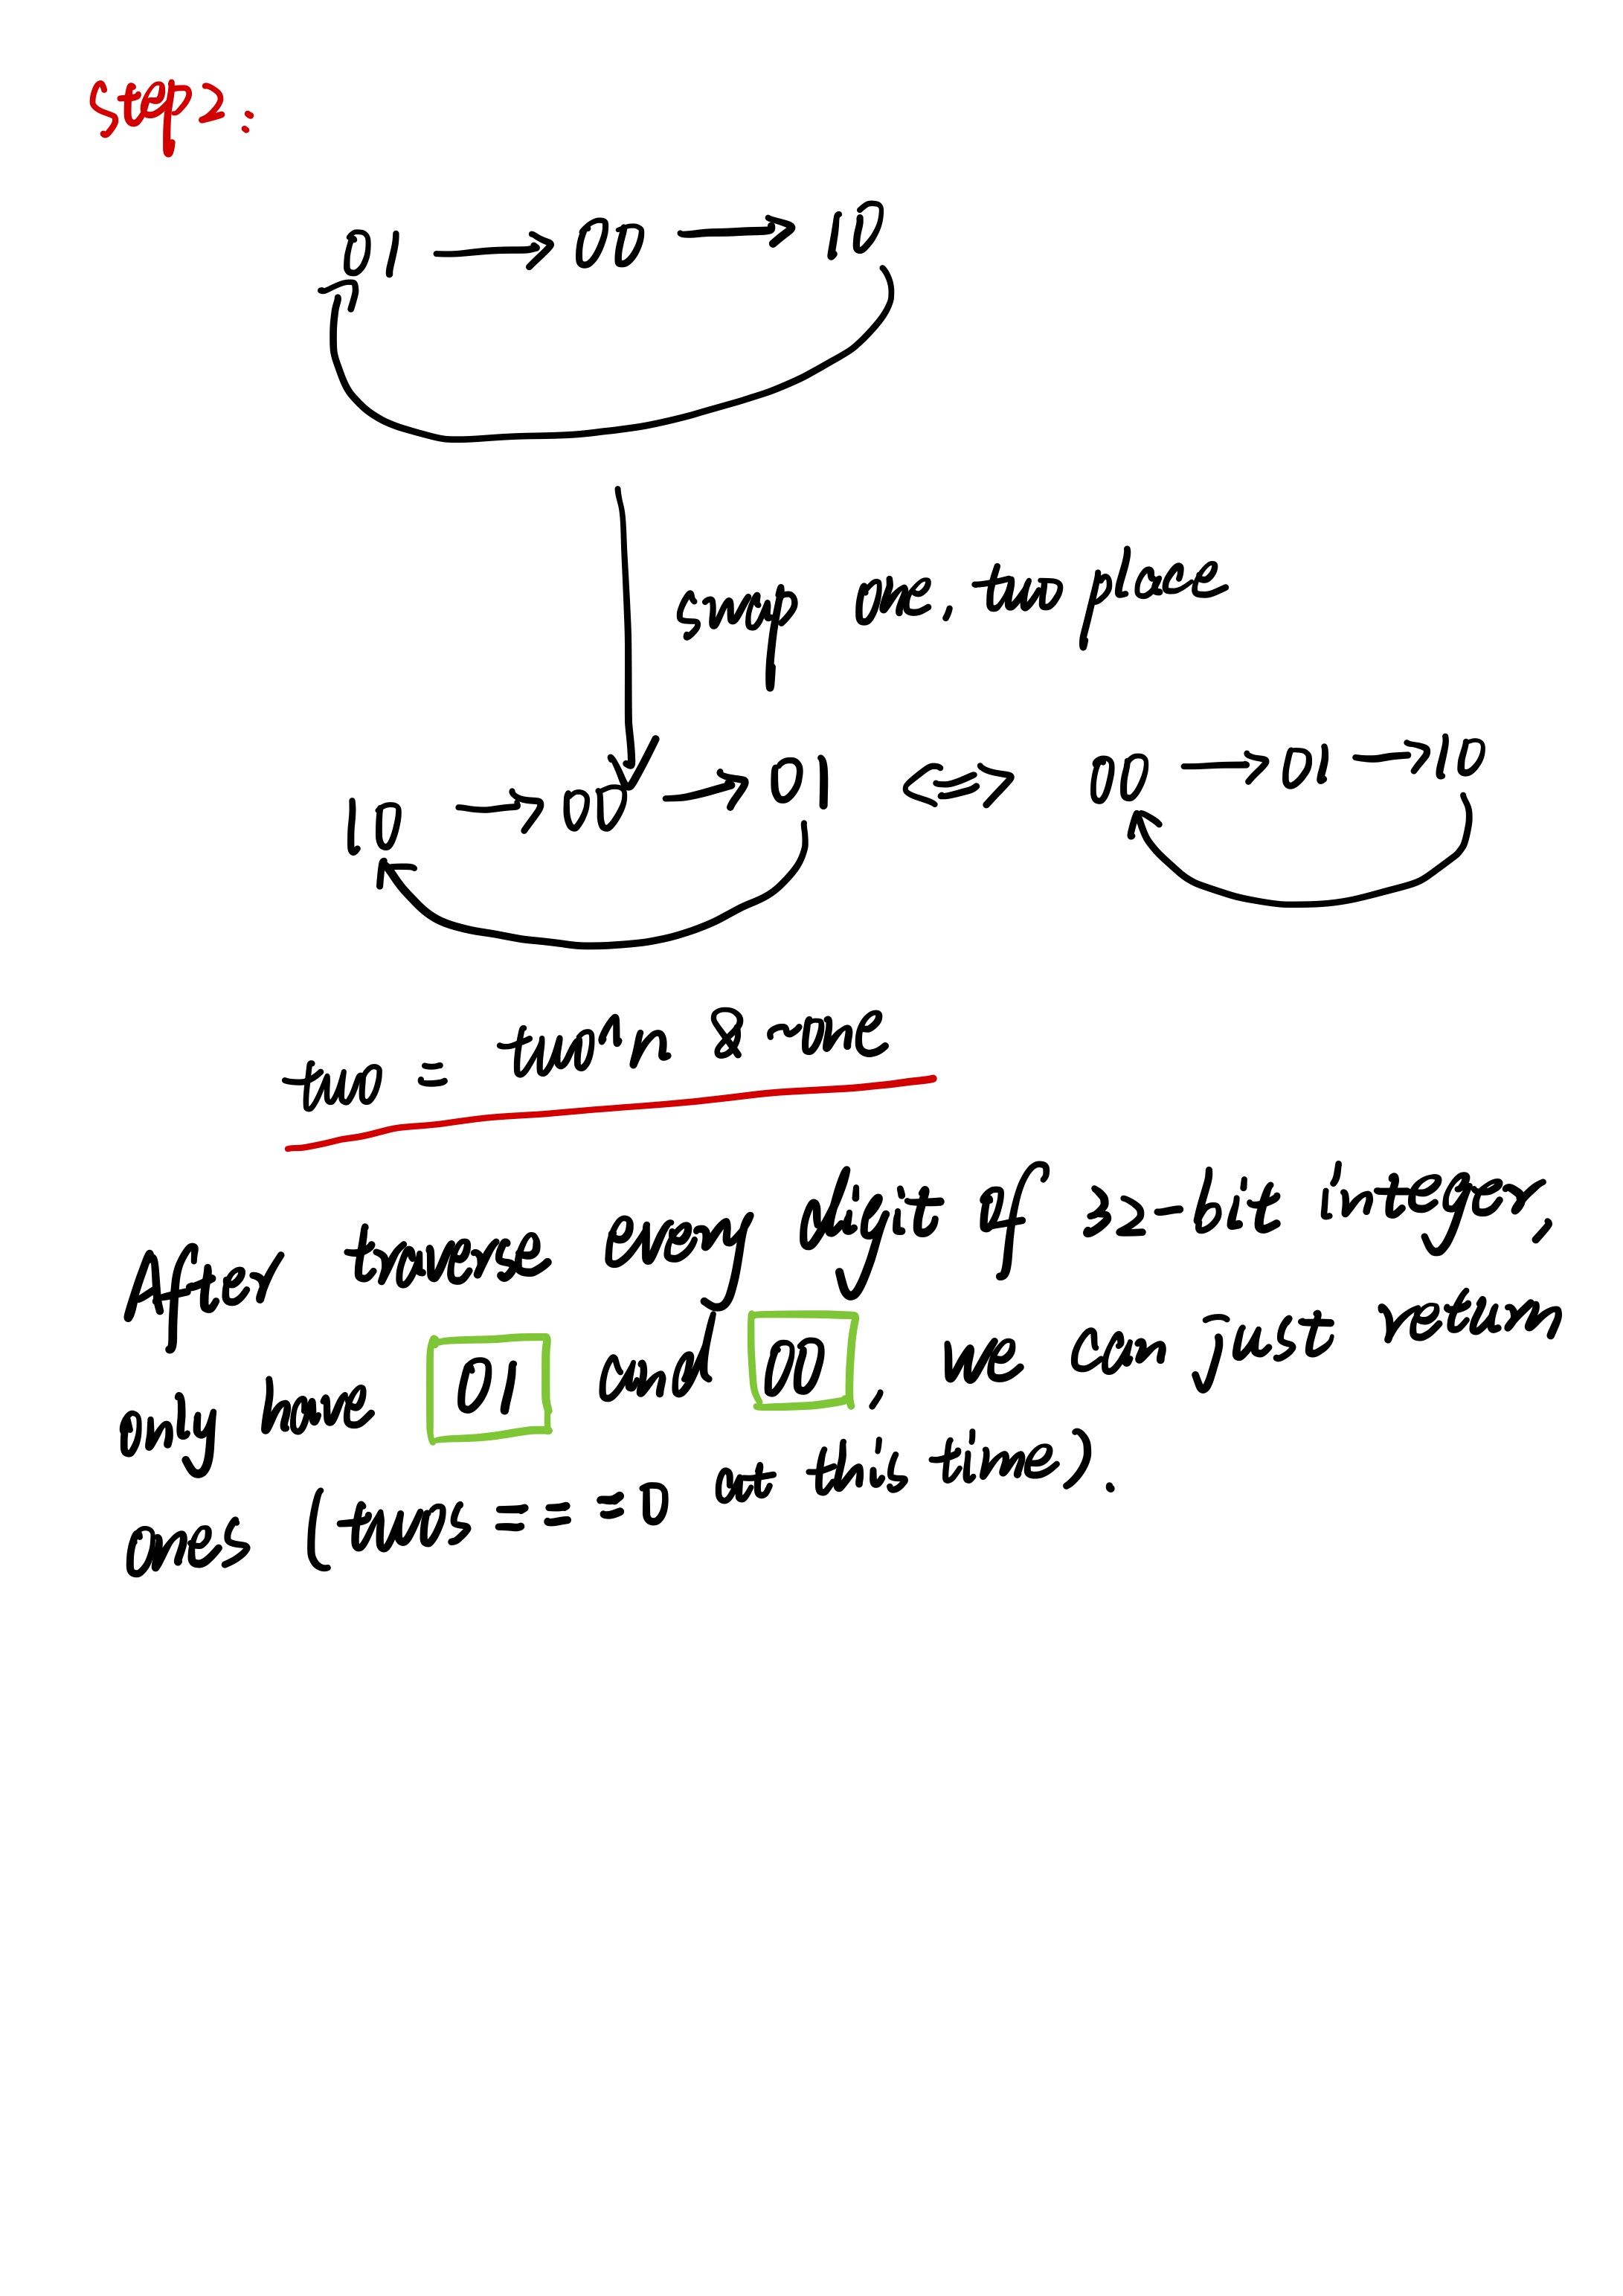 Step2:
01 → 00 → 10
swap one, two place
10 → 00 → 01 ⇔ 00 → 01 → 10
two = two^n & ~one
After traverse every digit of 32-bit integer,
only have 01 and 00, we can just return
ones (twos === 0 at this time).